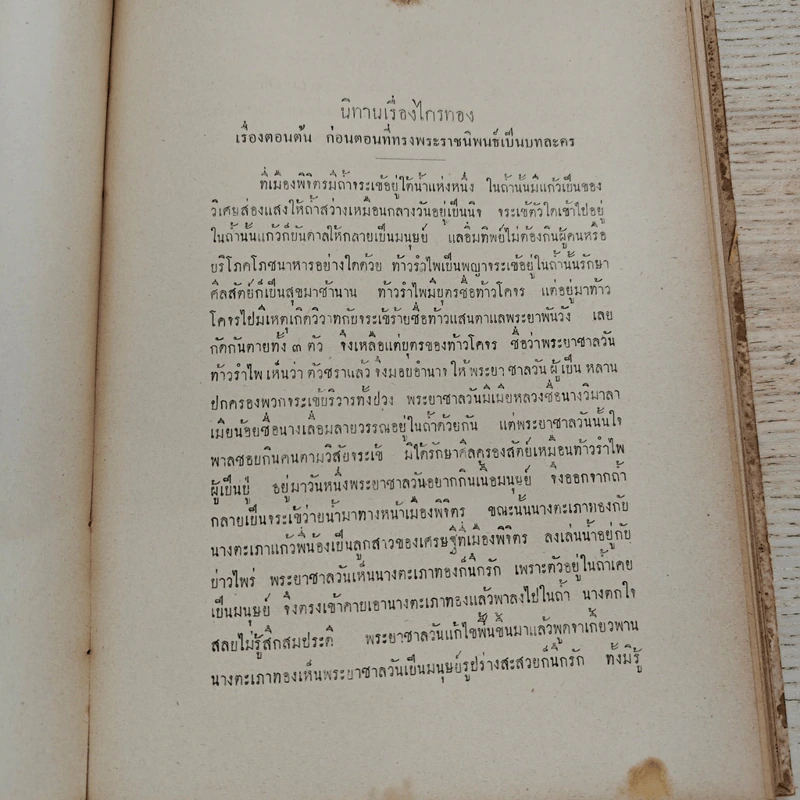 นิทานเรื่องไกรทอง
เรื่องตอนต้น ก่อนตอนที่ทรงพระราชนิพนธ์เป็นบทละคร
ที่เมืองพิจิตรมีถ้ำจระเข้อยู่ใต้น้ำแห่งหนึ่ง ในถ้ำนั้นมีแก้วเป็นของ
วิเศษส่องแสงให้ถ้ำสว่างเหมือนกลางวันอยู่เป็นนิจ จระเข้ตัวใดเข้าไปอยู่
ในถ้ำนั้นแก้วก็บันดาลให้กลายเป็นมนุษย์ แลอิ่มทิพย์ไม่ต้องกินผู้คนหรือ
บริโภคโภชนาหารอย่างใดด้วย ท้าวรำไพเป็นพญาจระเข้อยู่ในถ้ำนั้นรักษา
ศีลสัตย์ก็เป็นสุขมาช้านาน ท้าวรำไพมีบุตรชื่อท้าวโคจร แต่อยู่มาท้าว
โคจรไปมีเหตุเกิดวิวาทกับจระเข้ร้ายชื่อท้าวแสนตาแลพระยาพันวัง เลย
กัดกันตายทั้ง ๓ ตัว จึงเหลือแต่บุตรของท้าวโคจร ชื่อว่าพระยาชาลวัน
ท้าวรำไพ เห็นว่า ตัวชราแล้ว จึงมอบอำนาจ ให้ พระยา ชาลวัน ผู้ เป็น หลาน
ปกครองพวกจระเข้บริวารทั้งปวง พระยาชาลวันมีเมียหลวงชื่อนางวิมาลา
เมียน้อยชื่อนางเลื่อมลายวรรณอยู่ในถ้ำด้วยกัน แต่พระยาชาลวันนั้นใจ
พาลชอบกินคนตามวิสัยจระเข้ มิได้รักษาศีลครองสัตย์เหมือนท้าวรำไพ
ผู้เป็นปู่ อยู่มาวันหนึ่งพระยาชาลวันอยากกินเนื้อมนุษย์ จึงออกจากถ้ำ
กลายเป็นจระเข้ว่ายน้ำมาทางหน้าเมืองพิจิตร ขณะนั้นนางตะเภาทองกับ
นางตะเภาแก้วพี่น้องเป็นลูกสาวของเศรษฐีที่เมืองพิจิตร ลงเล่นน้ำอยู่กับ
บ่าวไพร่ พระยาชาลวันเห็นนางตะเภาทองก็นึกรัก เพราะตัวอยู่ในถ้ำเคย
เป็นมนุษย์ จึงตรงเข้าคาบเอานางตะเภาทองแล้วพาลงไปในถ้ำ นางตกใจ
สลบไม่รู้สึกสมประดี พระยาชาลวันแก้ไขฟื้นขึ้นมาแล้วพูดจาเกี้ยวพาน
นางตะเภาทองเห็นพระยาชาลวันเป็นมนุษย์รูปร่างสะสวยก็นึกรัก ทั้งมิรู้